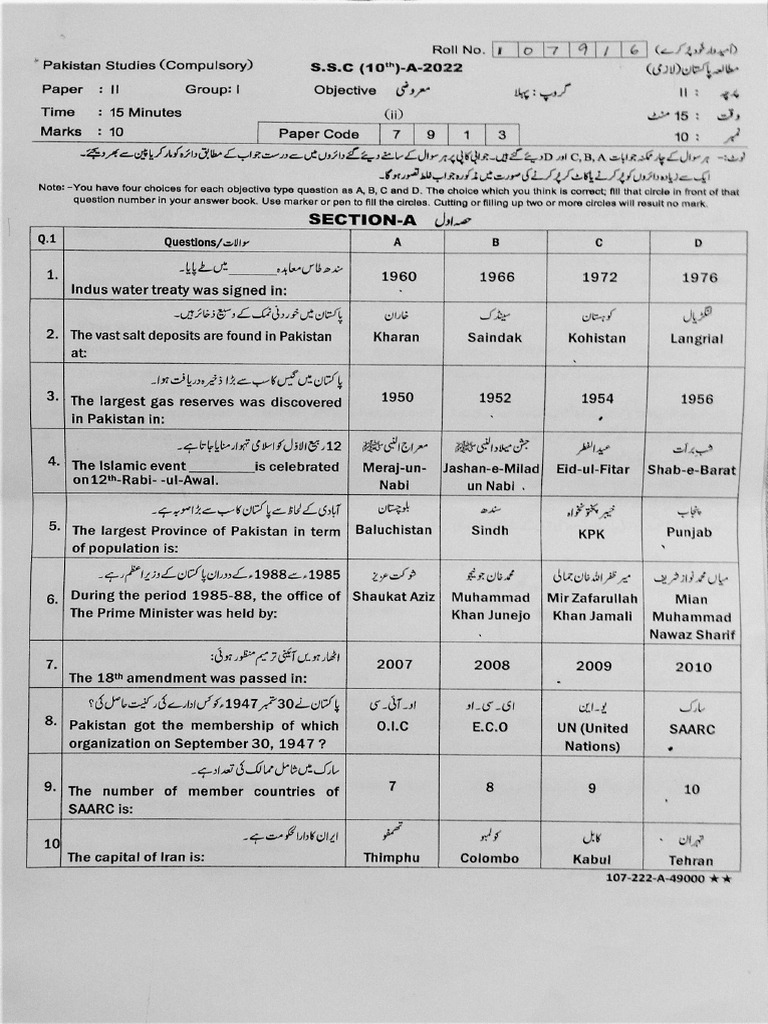 Roll No. 107916 (امیدوار خود پُر کرے)
Pakistan Studies (Compulsory) S.S.C (10th)-A-2022 مطالعہ پاکستان (لازمی)
Paper : II Group: I Objective معروضی گروپ: پہلا پرچہ : II
Time : 15 Minutes (ii) وقت : 15 منٹ
Marks : 10 Paper Code 7 9 1 3 نمبر : 10
نوٹ:- ہر سوال کے چار ممکنہ جوابات C, B, A اور D دیئے گئے ہیں۔ جوابی کاپی پر ہر سوال کے سامنے دیئے گئے دائروں میں سے درست جواب کے مطابق دائرہ کو مارکر یا پین سے بھر دیجئے۔
ایک سے زیادہ دائروں کو پُر کرنے یا کاٹ کر پُر کرنے کی صورت میں مذکورہ جواب غلط تصور ہوگا۔
Note: -You have four choices for each objective type question as A, B, C and D. The choice which you think is correct; fill that circle in front of that
question number in your answer book. Use marker or pen to fill the circles. Cutting or filling up two or more circles will result no mark.
SECTION-A حصہ اول
Q.1 Questions/سوالات A B C D
1. سندھ طاس معاہدہ ______ میں طے پایا۔
Indus water treaty was signed in: 1960 1966 1972 1976
2. پاکستان میں خوردنی نمک کے وسیع ذخائر ہیں۔ خاران سینڈک کوہستان لنگڑیال
The vast salt deposits are found in Pakistan Kharan Saindak Kohistan Langrial
at:
3. پاکستان میں گیس کا سب سے بڑا ذخیرہ دریافت ہوا۔
The largest gas reserves was discovered 1950 1952 1954 1956
in Pakistan in:
4. 12 ربیع الاوّل کو اسلامی تہوار منایا جاتا ہے۔ معراج النبی ﷺ جشن میلاد النبی ﷺ عید الفطر شب برأت
The Islamic event __________is celebrated Meraj-un- Jashan-e-Milad Eid-ul-Fitar Shab-e-Barat
on12th-Rabi- -ul-Awal. Nabi un Nabi .
5. آبادی کے لحاظ سے پاکستان کا سب سے بڑا صوبہ ہے۔ بلوچستان سندھ خیبر پختونخواہ پنجاب
The largest Province of Pakistan in term Baluchistan Sindh KPK Punjab
of population is:
6. 1985ء سے 1988ء کے دوران پاکستان کے وزیراعظم رہے۔ شوکت عزیز محمد خان جونیجو میر ظفر اللہ خان جمالی میاں محمد نواز شریف
During the period 1985-88, the office of Shaukat Aziz Muhammad Mir Zafarullah Mian
The Prime Minister was held by: Khan Junejo Khan Jamali Muhammad
Nawaz Sharif
7. اٹھارہویں آئینی ترمیم منظور ہوئی:
The 18th amendment was passed in: 2007 2008 2009 2010
8. پاکستان نے 30 ستمبر 1947ء کو کس ادارے کی رکنیت حاصل کی؟ او۔آئی۔سی ای۔سی۔او یو۔این سارک
Pakistan got the membership of which O.I.C E.C.O UN (United SAARC
organization on September 30, 1947 ? Nations)
9. سارک میں شامل ممالک کی تعداد ہے۔
The number of member countries of 7 8 9 10
SAARC is:
10 ایران کا دارالحکومت ہے۔ تھمفو کولمبو کابل تہران
The capital of Iran is: Thimphu Colombo Kabul Tehran
107-222-A-49000 ★★